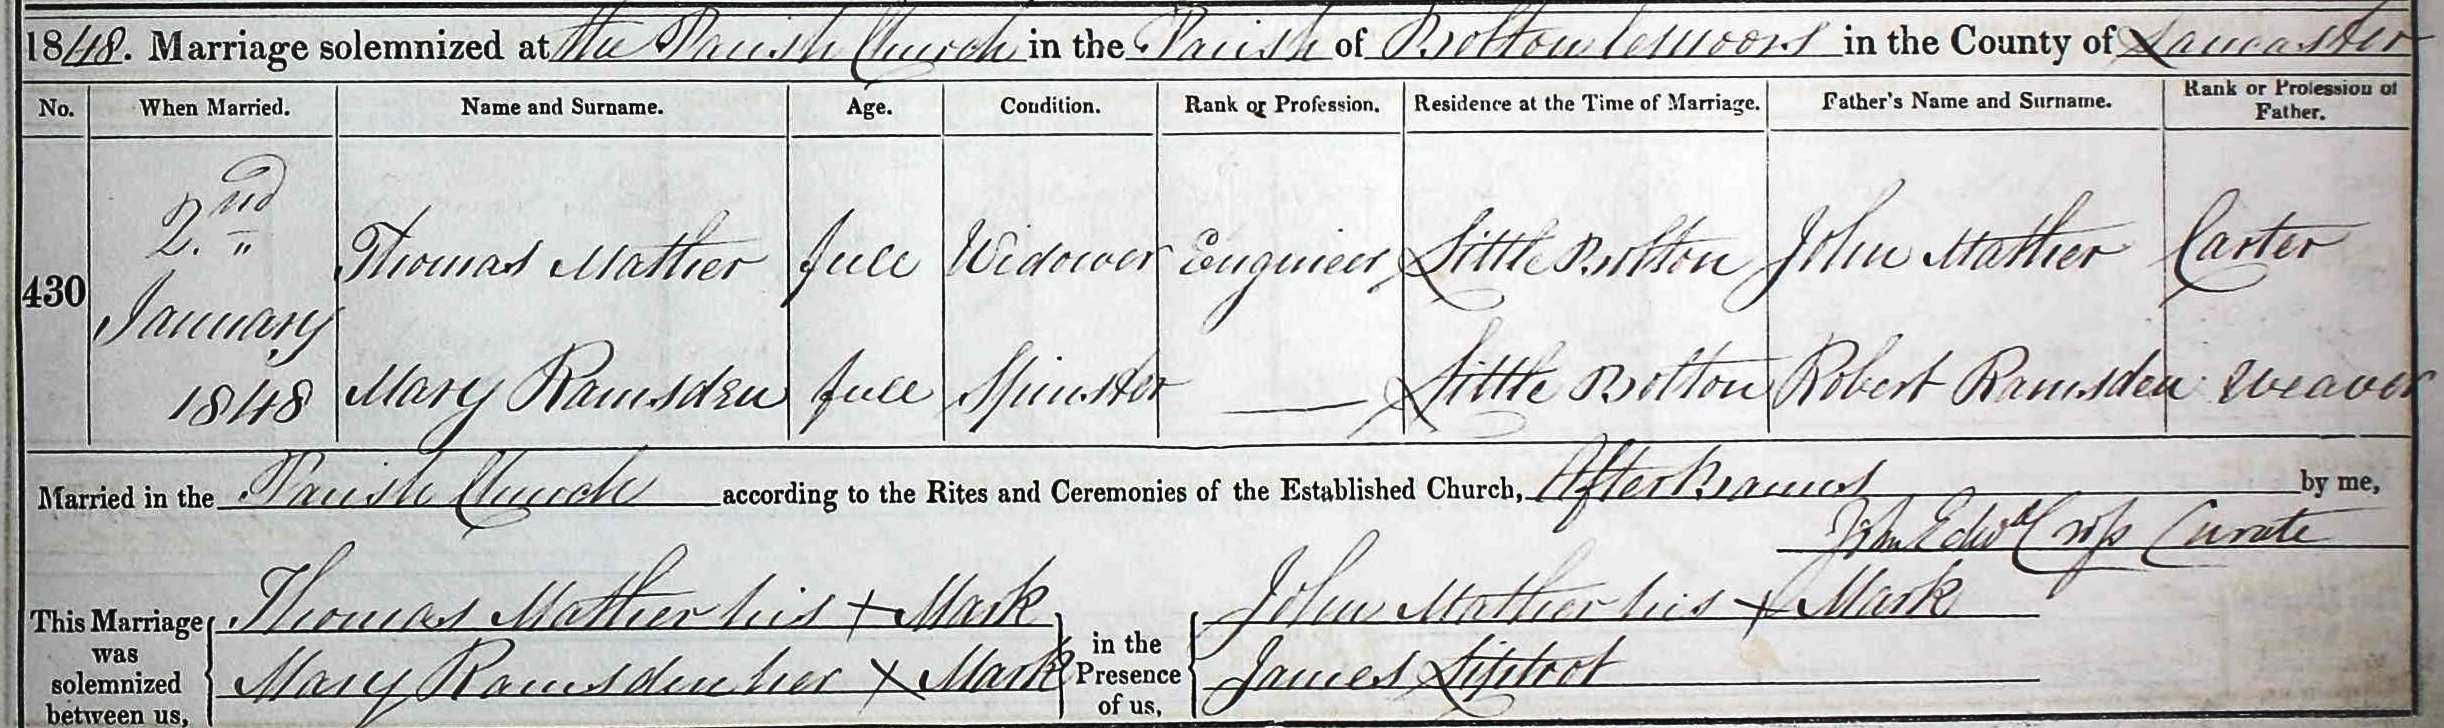 1848. Marriage solemnized at the Parish Church in the Parish of Bolton le moors in the County of Lancaster
No. When Married. Name and Surname. Age. Condition. Rank or Profession. Residence at the Time of Marriage. Father's Name and Surname. Rank or Profession of Father.
430 2.nd January 1848
Thomas Mather full Widower Engineer Little Bolton John Mather Carter
Mary Ramsden full Spinster — Little Bolton Robert Ramsden Weaver
Married in the Parish Church according to the Rites and Ceremonies of the Established Church, After Banns by me,
John Edwd Cross Curate
This Marriage was solemnized between us,
Thomas Mather his + Mark
Mary Ramsden her X Mark
in the Presence of us,
John Mather his + Mark
James